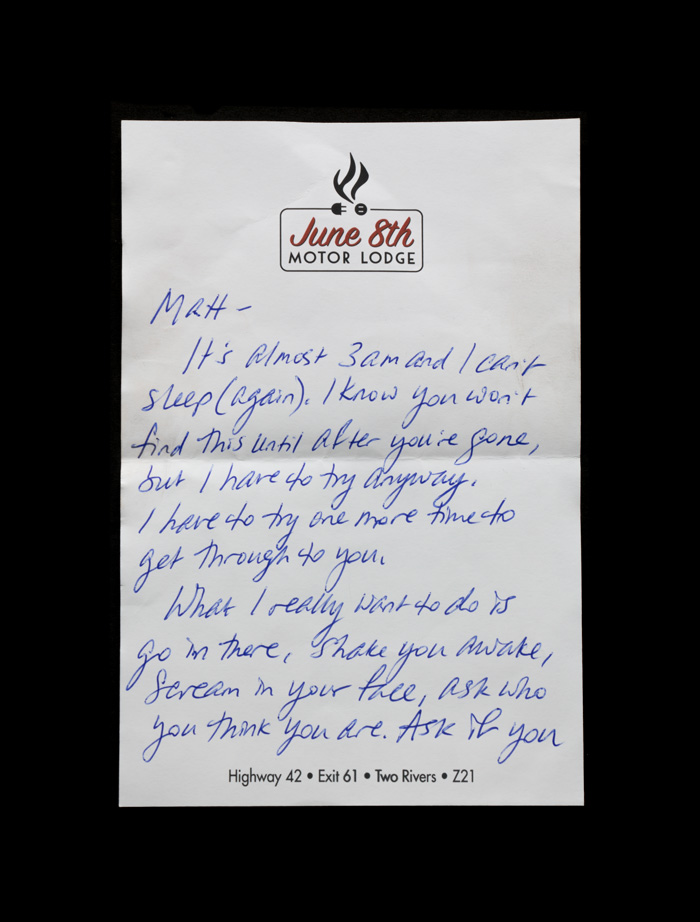 June 8th
MOTOR LODGE
Matt –
It's almost 3am and I can't
sleep (again). I know you won't
find this until after you're gone,
but I have to try anyway.
I have to try one more time to
get through to you.
What I really want to do is
go in there, shake you awake,
scream in your face, ask who
you think you are. Ask if you
Highway 42 • Exit 61 • Two Rivers • Z21